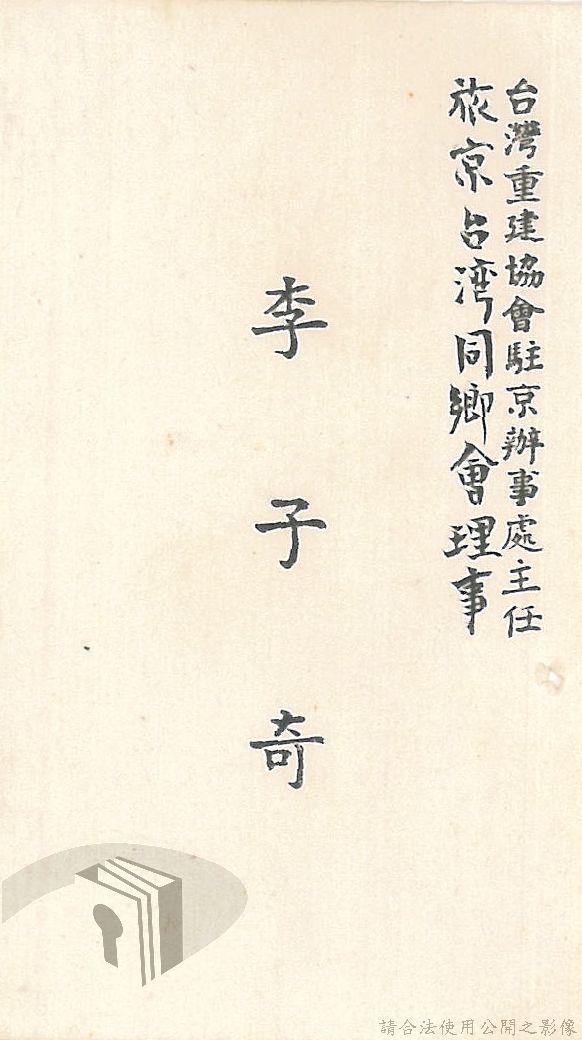 台灣重建協會駐京辦事處主任
旅京台湾同鄉會理事
李子奇
請合法使用公開之影像